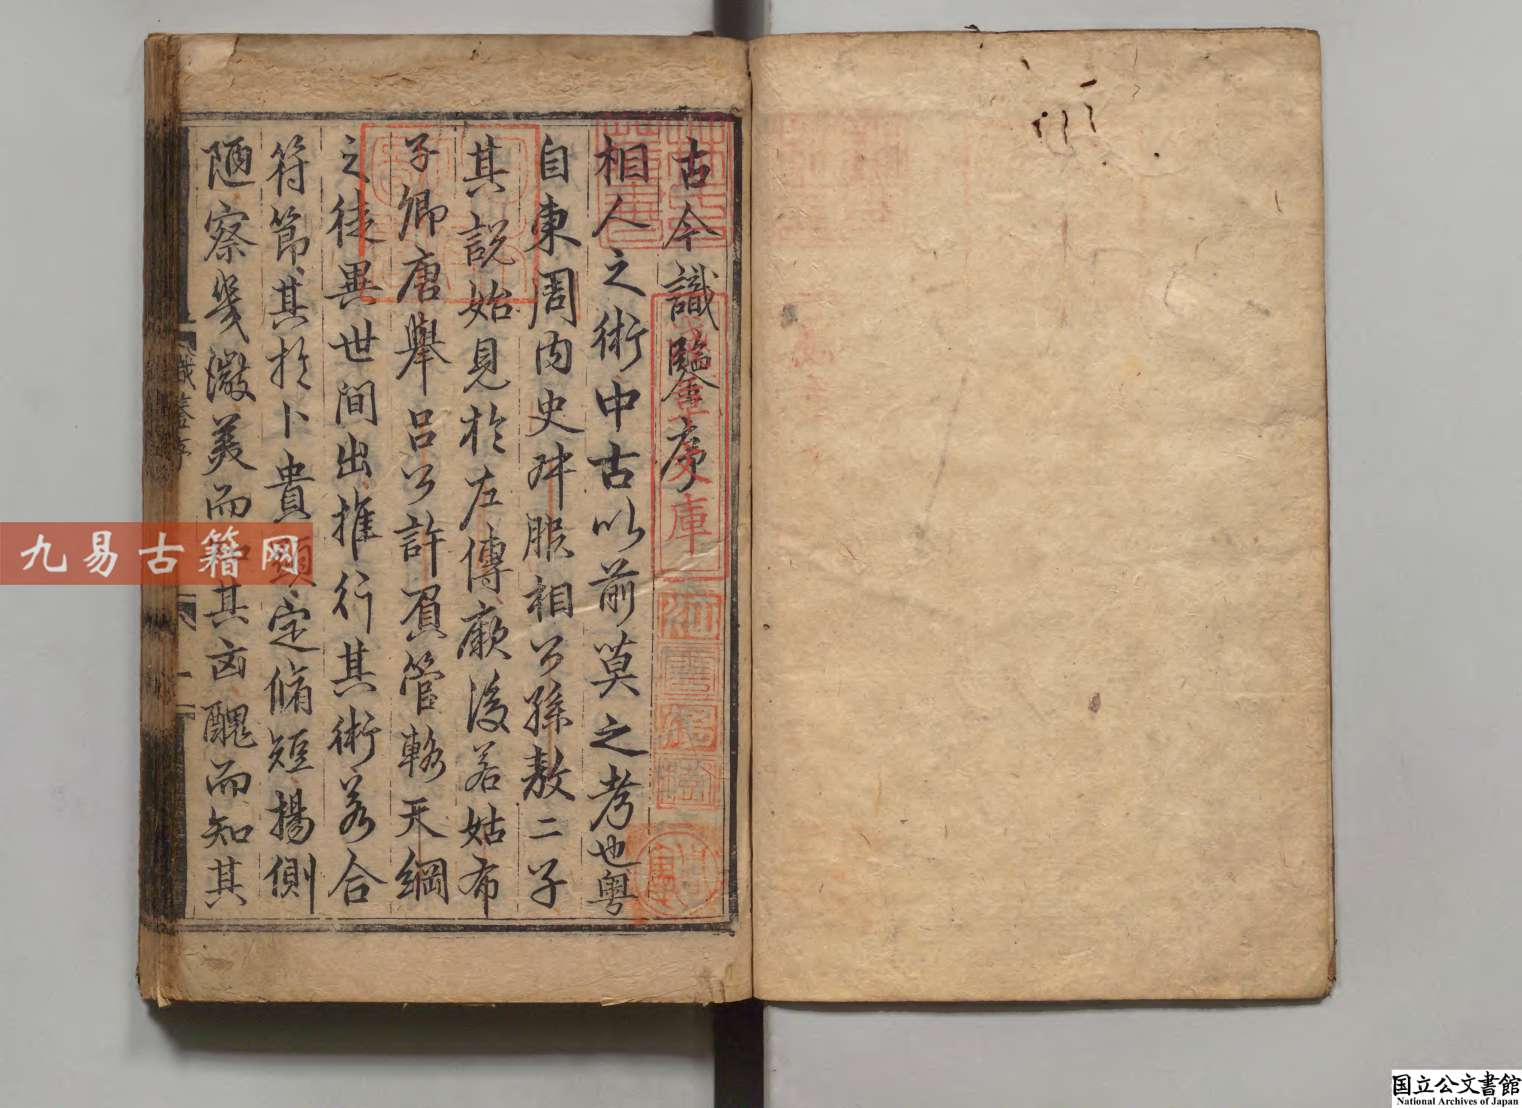 古今識鑒序
相人之術中古以前莫之考也粤
自東周内史叔服相公孫敖二子
其說始見於左傳厥後若姑布
子卿唐舉呂公許負管輅天綱
之徒異世間出推行其術若合
符節其於卜貴賤定脩短揚側
陋察幾微美而知其凶醜而知其
識鑒序
一
文庫
九易古籍网
国立公文書館
National Archives of Japan